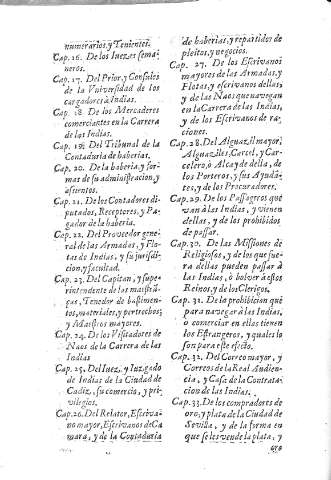 numerarios, y Tenientes.
Cap. 16. De los Iuezes semaneros.
Cap. 17. Del Prior, y Consules
de la Vniversidad de los
cargadores à Indias.
Cap. 18. De los Mercaderes
comerciantes en la Carrera
de las Indias.
Cap. 19. Del Tribunal de la
Contaduria de haberias.
Cap. 20. De la haberia, y formas
de su administracion, y
assientos.
Cap. 21. De los Contadores diputados,
Receptores, y Pagador
de la haberia.
Cap. 22. Del Proveedor general
de las Armadas, y Flotas
de Indias, y su jurisdicion,
y facultad.
Cap. 23. Del Capitan, y superintendente
de las maestrãças,
Tenedor de bastimentos,
materiales, y pertrechos;
y Maestros mayores.
Cap. 24. De los Visitadores de
Naos de la Carrera de las
Indias
Cap. 25. Del Iuez, y Iuzgado
de Indias de la Ciudad de
Cadiz, su comercio, y privilegios.
Cap. 26. Del Relator, Escrivano
mayor, Escrivanos de Camara,
y de la Contaduria
de haberias, y repartidos de
pleitos, y negocios.
Cap. 27. De los Escrivanos
mayores de las Armadas, y
Flotas, y escrivanos dellas;
y de las Naos que navegan
en la Carrera de las Indias,
y de los Escrivanos de raciones.
Cap. 28. Del Alguazil mayor,
Alguaziles, Carcel, y Carcelero,
ò Alcayde della, de
los Porteros, y sus Ayudãtes,
y de los Procuradores.
Cap. 29. De los Passageros que
van à las Indias, y vienen
dellas, y de los prohibidos
de passar.
Cap. 30. De las Missiones de
Religiosos, y de los que fuera
dellas pueden passar à
las Indias, ò bolver à estos
Reinos, y de los Clerigos.
Cap. 31. De la prohibicion que
para navegar à las Indias,
o comerciar en ellas tienen
los Estrangeros, y quales lo
son para este efecto.
Cap. 32. Del Correo mayor, y
Correos de la Real Audiencia,
y Casa de la Contratacion
de las Indias.
Cap. 33. De los compradores de
oro, y plata de la Ciudad de
Sevilla, y de la forma en
que se les vende la plata, y